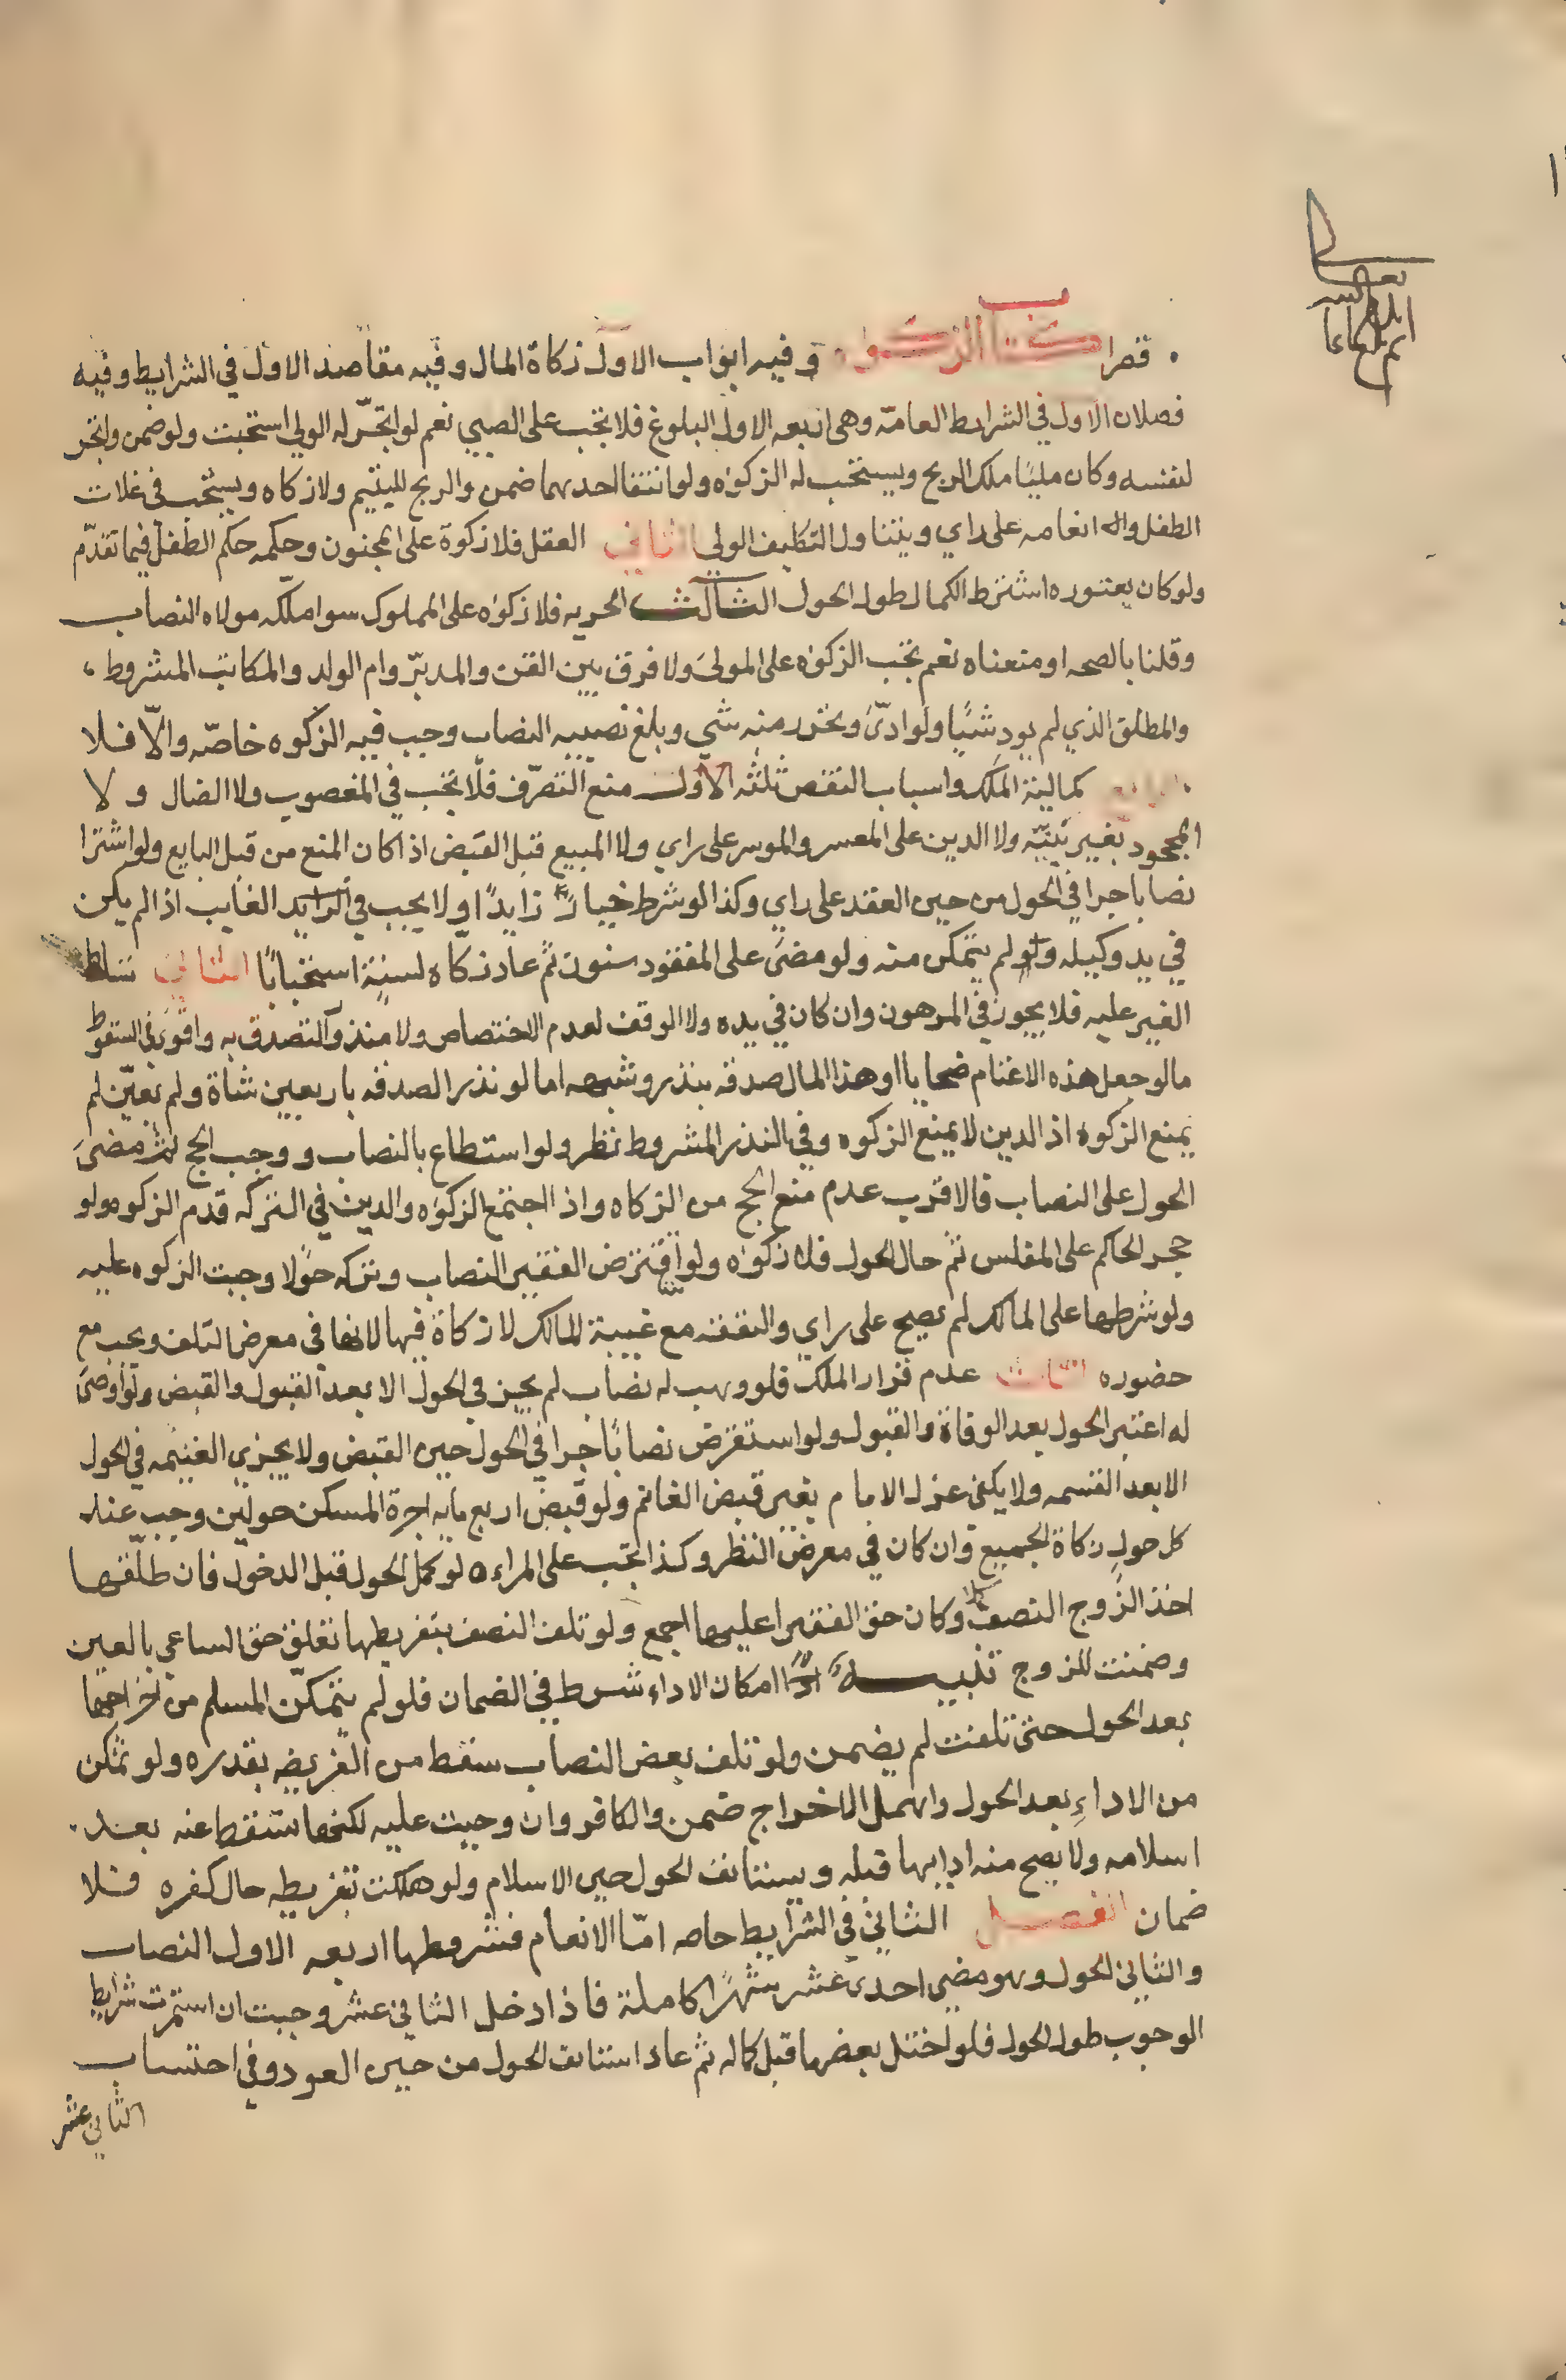 قصرا كتاب الزكوه وفيه ابواب الاول زكاة المال وفيه مقاصد الاول في الشرايط وفيه
فصلان الاول في الشرايط العامّه وهى اربعه الاول البلوغ فلا تجب على الصبي نعم لو اتجّر له الولي استحبت ولو ضمن واتجر
لنفسه وكان مليًا ملك الربح ويستحب له الزكوه ولو انتفا احدهما ضمن والربح لليتيم ولا زكاه ويستحب في غلات
الطفل وانعامه على راي ويتناول التكليف الولي الثاني العقل فلا زكوة على المجنون وحكمه حكم الطفل فيما تقدّم
ولو كان يعتوره اشترط الكمال طول الحول الثالث الحريه فلا زكوه على المملوك سوا ملّكه مولاه النصاب
وقلنا بالصحه او منعناه نعم تجب الزكوه على المولى ولا فرق بين القن والمدبّر وام الولد والمكاتب المشروط
والمطلق الذي لم يود شيًا ولو ادّى وتحرر منه شي وبلغ نصيبه النصاب وجب فيه الزكوه خاصّه والّا فلا
الرابع كمالية الملك واسباب النقص ثلثه الاول منع التصرّف فلا تجب في المغصوب ولا الضال ولا
المجحود بغير بيّنه ولا الدين على المعسر والموسر على راي ولا المبيع قبل القبض اذا كان المنع من قبل البايع ولو اشترا
نصابا جرا في الحول من حين العقد على راي وكذا لو شرط خيارًا زايدًا ولا يجب في الغايب اذا لم يكن
في يد وكيله ولم يتمكن منه ولو مضى على المفقود سنون ثم عاد زكاه لسنة استحبابًا الثاني تسلط
الغير عليه فلا يجوز في المرهون وان كان في يده ولا الوقف لعدم الاختصاص ولا منذور التصدق به واقوى في السقوط
ما لو جعل هذه الاغنام ضحايا او هذا المال صدقه بنذر وشبهه اما لو نذر الصدقه باربعين شاة ولم يعيّن لم
يمنع الزكوه اذ الدين لا يمنع الزكوه وفي النذر المشروط نظر ولو استطاع بالنصاب ووجب الحج ثم مضى
الحول على النصاب فالاقرب عدم منع الحج من الزكاه واذا اجتمع الزكوه والدين في التركه قدم الزكوه ولو
حجر الحاكم على المفلس ثم حال الحول فلا زكوه ولو اقترض الفقير النصاب وتركه حولا وجبت الزكوه عليه
ولو شرطها على المالك لم يصح على راي والنفقه مع غيبة المالك لا زكاة فيها لانها في معرض التلف ويجب مع
حضوره الثالث عدم قرار الملك فلو وهب له نصاب لم يجز في الحول الا بعد القبول والقبض ولو اوصى
له اعتبر الحول بعد الوفاة والقبول ولو استقرض نصابًا جرا في الحول حين القبض ولا يجزي الغنيمه في الحول
الا بعد القسمه ولا يكفى عزل الامام بغير قبض الغانم ولو قبض اربع مايه اجرة المسكن حولين وجب عند
كل حول زكاة الجميع وان كان في معرض النظر وكذا تجب على المراه لو كمل الحول قبل الدخول فان طلّقها
اخذ الزوج النصف وكان حق الفقيرا عليها اجمع ولو تلف النصف بتفريطها تعلق حق الساعي بالعين
وضمنت للزوج تنبيه امكان الاداء شرط في الضمان فلو لم يتمكّن المسلم من اخراجها
بعد الحول حتى تلفت لم يضمن ولو تلف بعض النصاب سقط من الفريضه بقدره ولو تمكن
من الاداء بعد الحول واهمل الاخراج ضمن والكافر وان وجبت عليه لكنها تسقط عنه بعد
اسلامه ولا يصح منه ادايها قبله ويستانف الحول حين الاسلام ولو هلكت بتفريطه حال كفره فلا
ضمان الفصل الثاني في الشرايط خاصه امّا الانعام فشروطها اربعه الاول النصاب
والثاني الحول وهو مضى احدى عشر شهرًا كاملة فاذا دخل الثاني عشر وجبت ان استمرت شرايط
الوجوب طول الحول فلو اختل بعضها قبل كماله ثم عاد استانف الحول من حين العود وفي احتساب
الثاني عشر